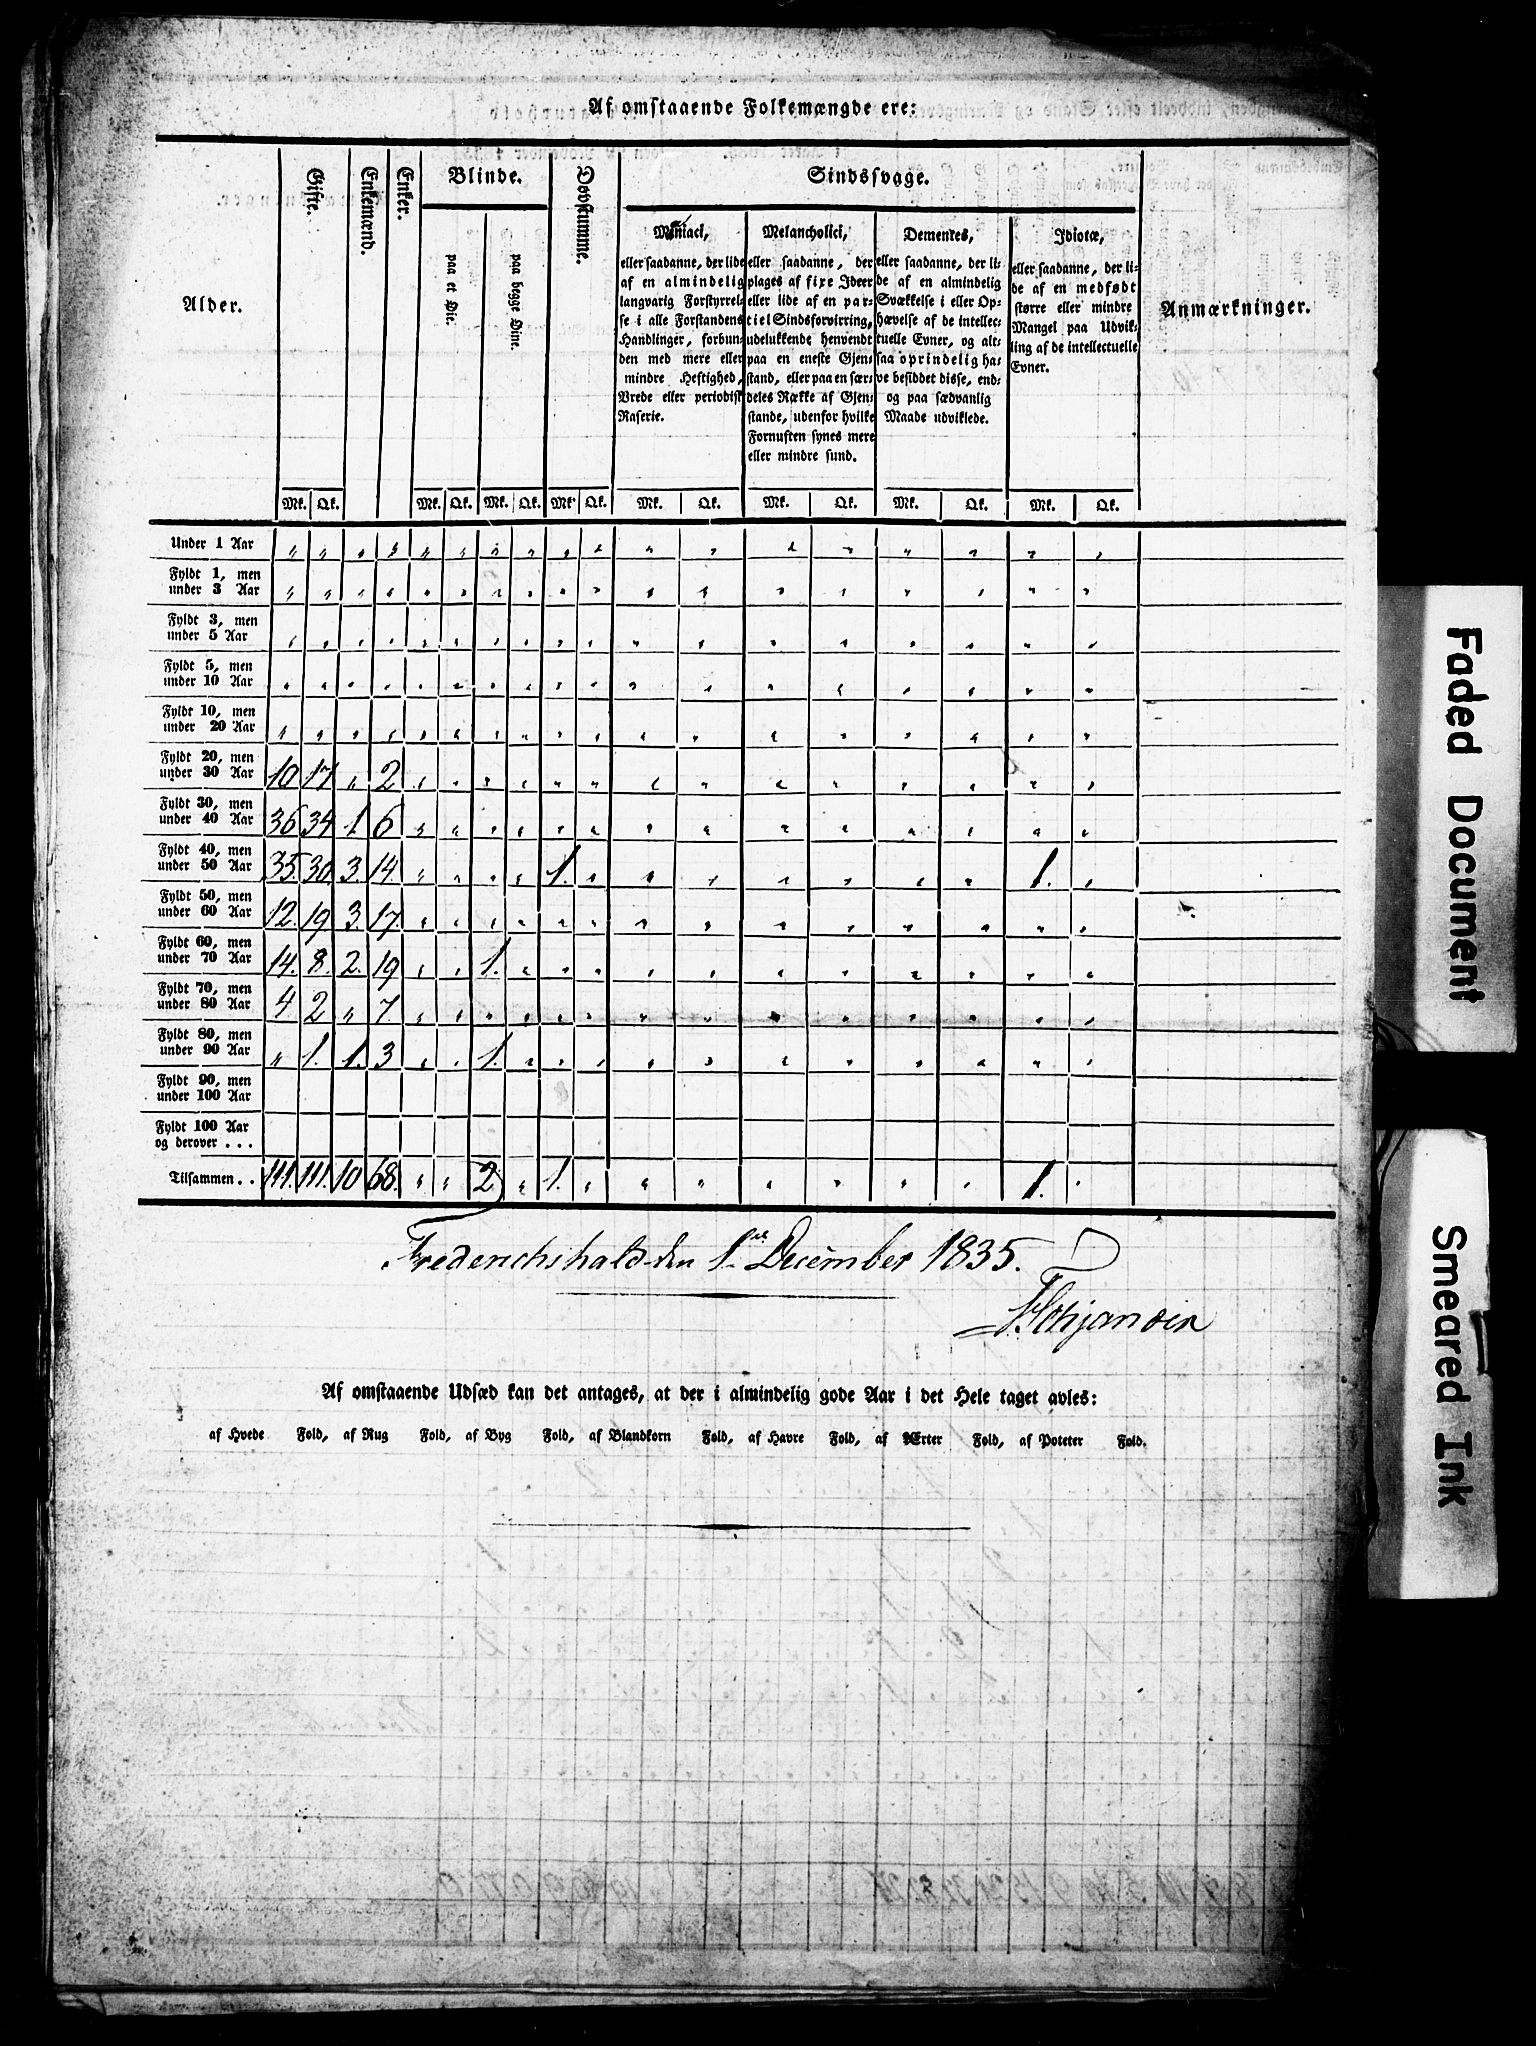 Af omstaaende Folkemængde ere:
Alder. Gifte. Enkemænd. Enker. Blinde. Døvstumme. Sindssvage. Anmærkninger.
paa et Øie. paa begge Øine.
Maniaci,
eller saadanne, der lide
af en almindelig
langvarig Forstyrrel-
se i alle Forstandens
Handlinger, forbun-
den med mere eller
mindre Heftighed,
Vrede eller periodisk
Raserie.
Melancholici,
eller saadanne, der
plages af fixe Ideer
eller lide af en par-
tiel Sindsforvirring,
udelukkende henvendt
paa en eneste Gjen-
stand, eller paa en sær-
deles Række af Gjen-
stande, udenfor hvilke
Fornuften synes mere
eller mindre sund.
Dementes,
eller saadanne, der li-
de af en almindelig
Svækkelse i eller Op-
hævelse af de intellec-
tuelle Evner, og alt-
saa oprindelig ha-
ve besiddet disse, end-
og paa sædvanlig
Maade udviklede.
Idiotæ,
eller saadanne, der li-
de af en medfødt
større eller mindre
Mangel paa Udvik-
ling af de intellectuelle
Evner.
Mk. Qk. Mk. Qk. Mk. Qk. Mk. Qk. Mk. Qk. Mk. Qk. Mk. Qk. Mk. Qk.
Under 1 Aar " " " " " " " " " " " " " " " " " "
Fyldt 1, men
under 3 Aar " " " " " " " " " " " " " " " " " "
Fyldt 3, men
under 5 Aar " " " " " " " " " " " " " " " " " "
Fyldt 5, men
under 10 Aar " " " " " " " " " " " " " " " " " "
Fyldt 10, men
under 20 Aar " " " " " " " " " " " " " " " " " "
Fyldt 20, men
under 30 Aar 10 17 " 2 " " " " " " " " " " " " " "
Fyldt 30, men
under 40 Aar 36 34 1 6 " " " " " " " " " " " " " "
Fyldt 40, men
under 50 Aar 35. 30. 3. 14. " " " " 1. " " " " " " " 1. "
Fyldt 50, men
under 60 Aar 12. 19 3. 17. " " " " " " " " " " " " " "
Fyldt 60, men
under 70 Aar 14. 8. 2. 19 " " 1. " " " " " " " " " " "
Fyldt 70, men
under 80 Aar 4 2 " 7. " " " " " " " " " " " " " "
Fyldt 80, men
under 90 Aar " 1. 1. 3 " " 1. " " " " " " " " " " "
Fyldt 90, men
under 100 Aar
Fyldt 100 Aar
og derover . . .
Tilsammen . . 111. 111. 10 68. " " 2 " 1. " " " " " " " 1. "
Frederichshald den 1ste December 1835.
Af omstaaende Udsæd kan det antages, at der i almindelig gode Aar i det Hele taget avles:
af Hvede Fold, af Rug Fold, af Byg Fold, af Blandkorn Fold, af Havre Fold, af Ærter Fold, af Poteter Fold.
Faded Document
Smeared Ink